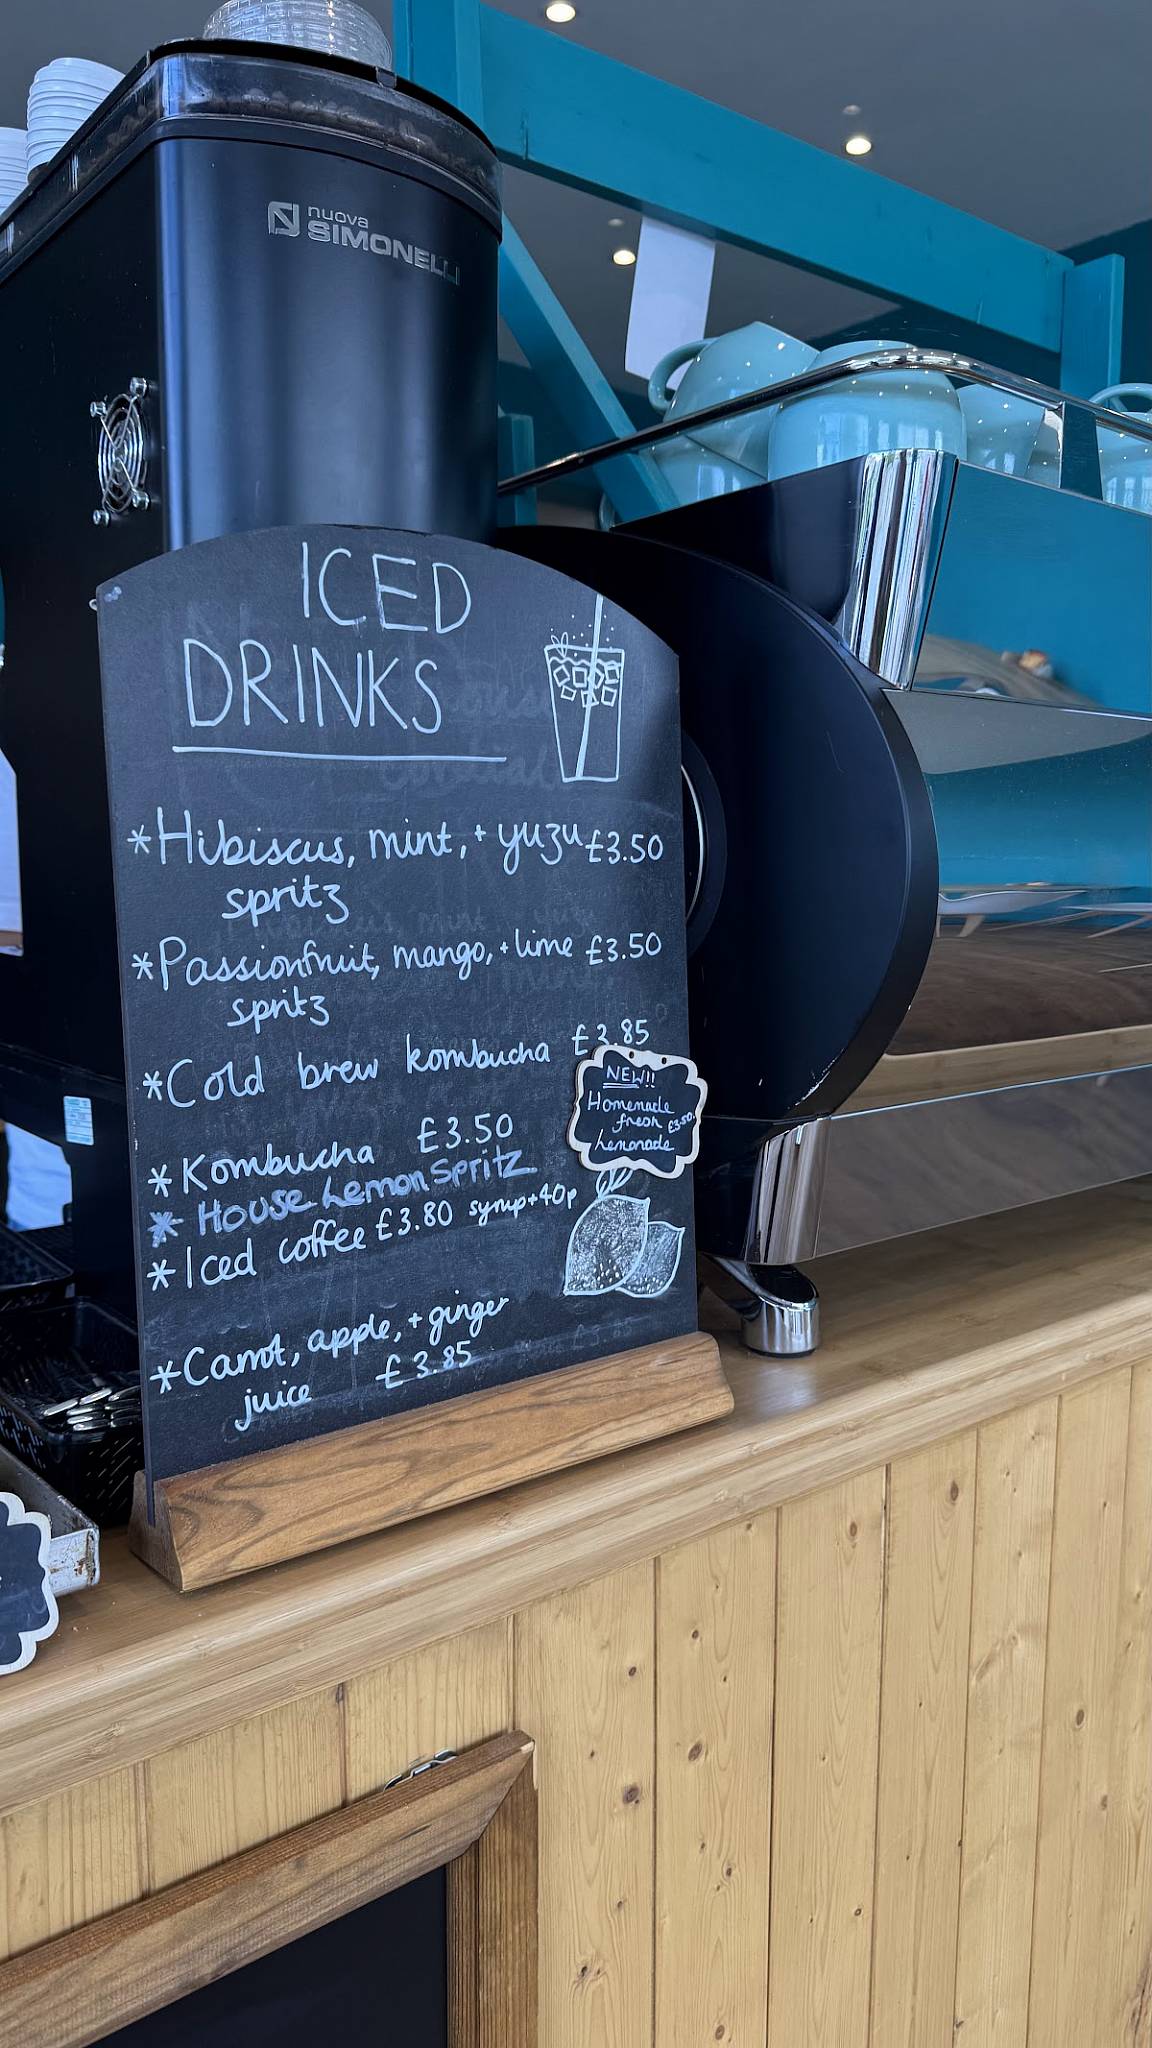 nuova
SIMONELLI
ICED
DRINKS
*Hibiscus, mint, + yuzu £3.50
spritz
*Passionfruit, mango, + lime £3.50
spritz
*Cold brew kombucha £3.85
NEW!!
Homemade
fresh £3.50.
Lemonade
*Kombucha £3.50
*House Lemon Spritz
*Iced coffee £3.80 syrup+40p
*Carrot, apple, + ginger
juice £3.85